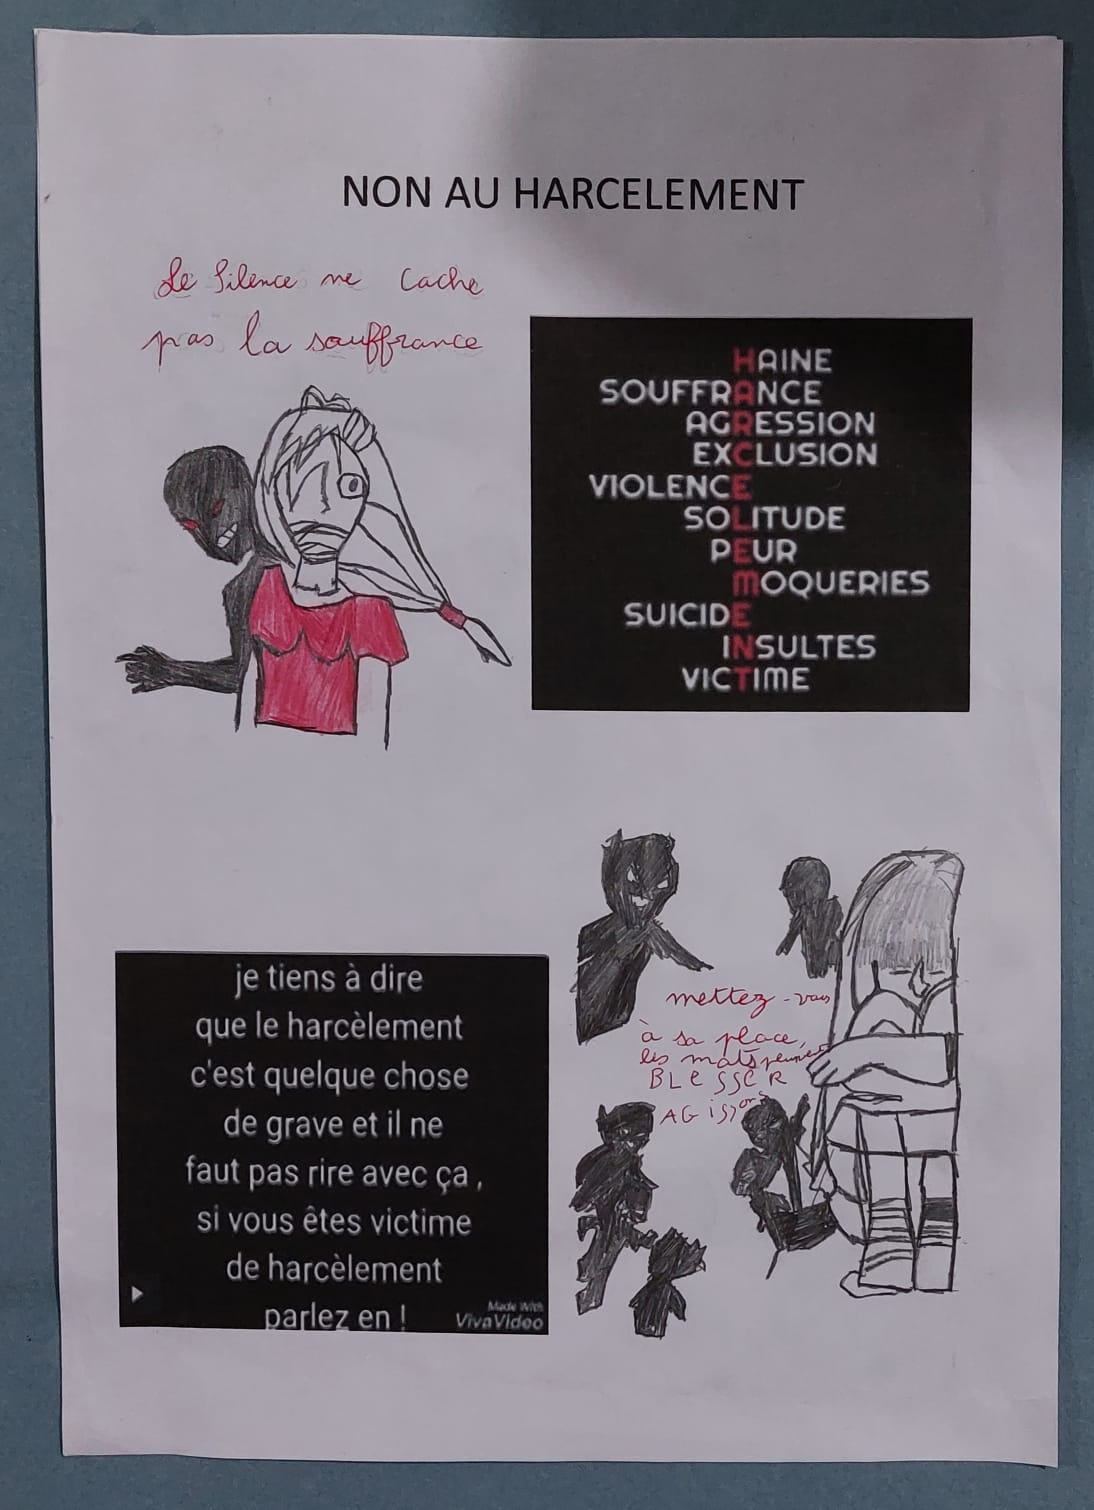 NON AU HARCELEMENT
Le silence ne cache
pas la souffrance
HAINE
SOUFFRANCE
AGRESSION
EXCLUSION
VIOLENCE
SOLITUDE
PEUR
MOQUERIES
SUICIDE
INSULTES
VICTIME
je tiens à dire
que le harcèlement
c'est quelque chose
de grave et il ne
faut pas rire avec ça ,
si vous êtes victime
de harcèlement
parlez en !
Made With
VivaVideo
mettez-vous
à sa place,
les mots peuvent
BLeSSER
AGissons